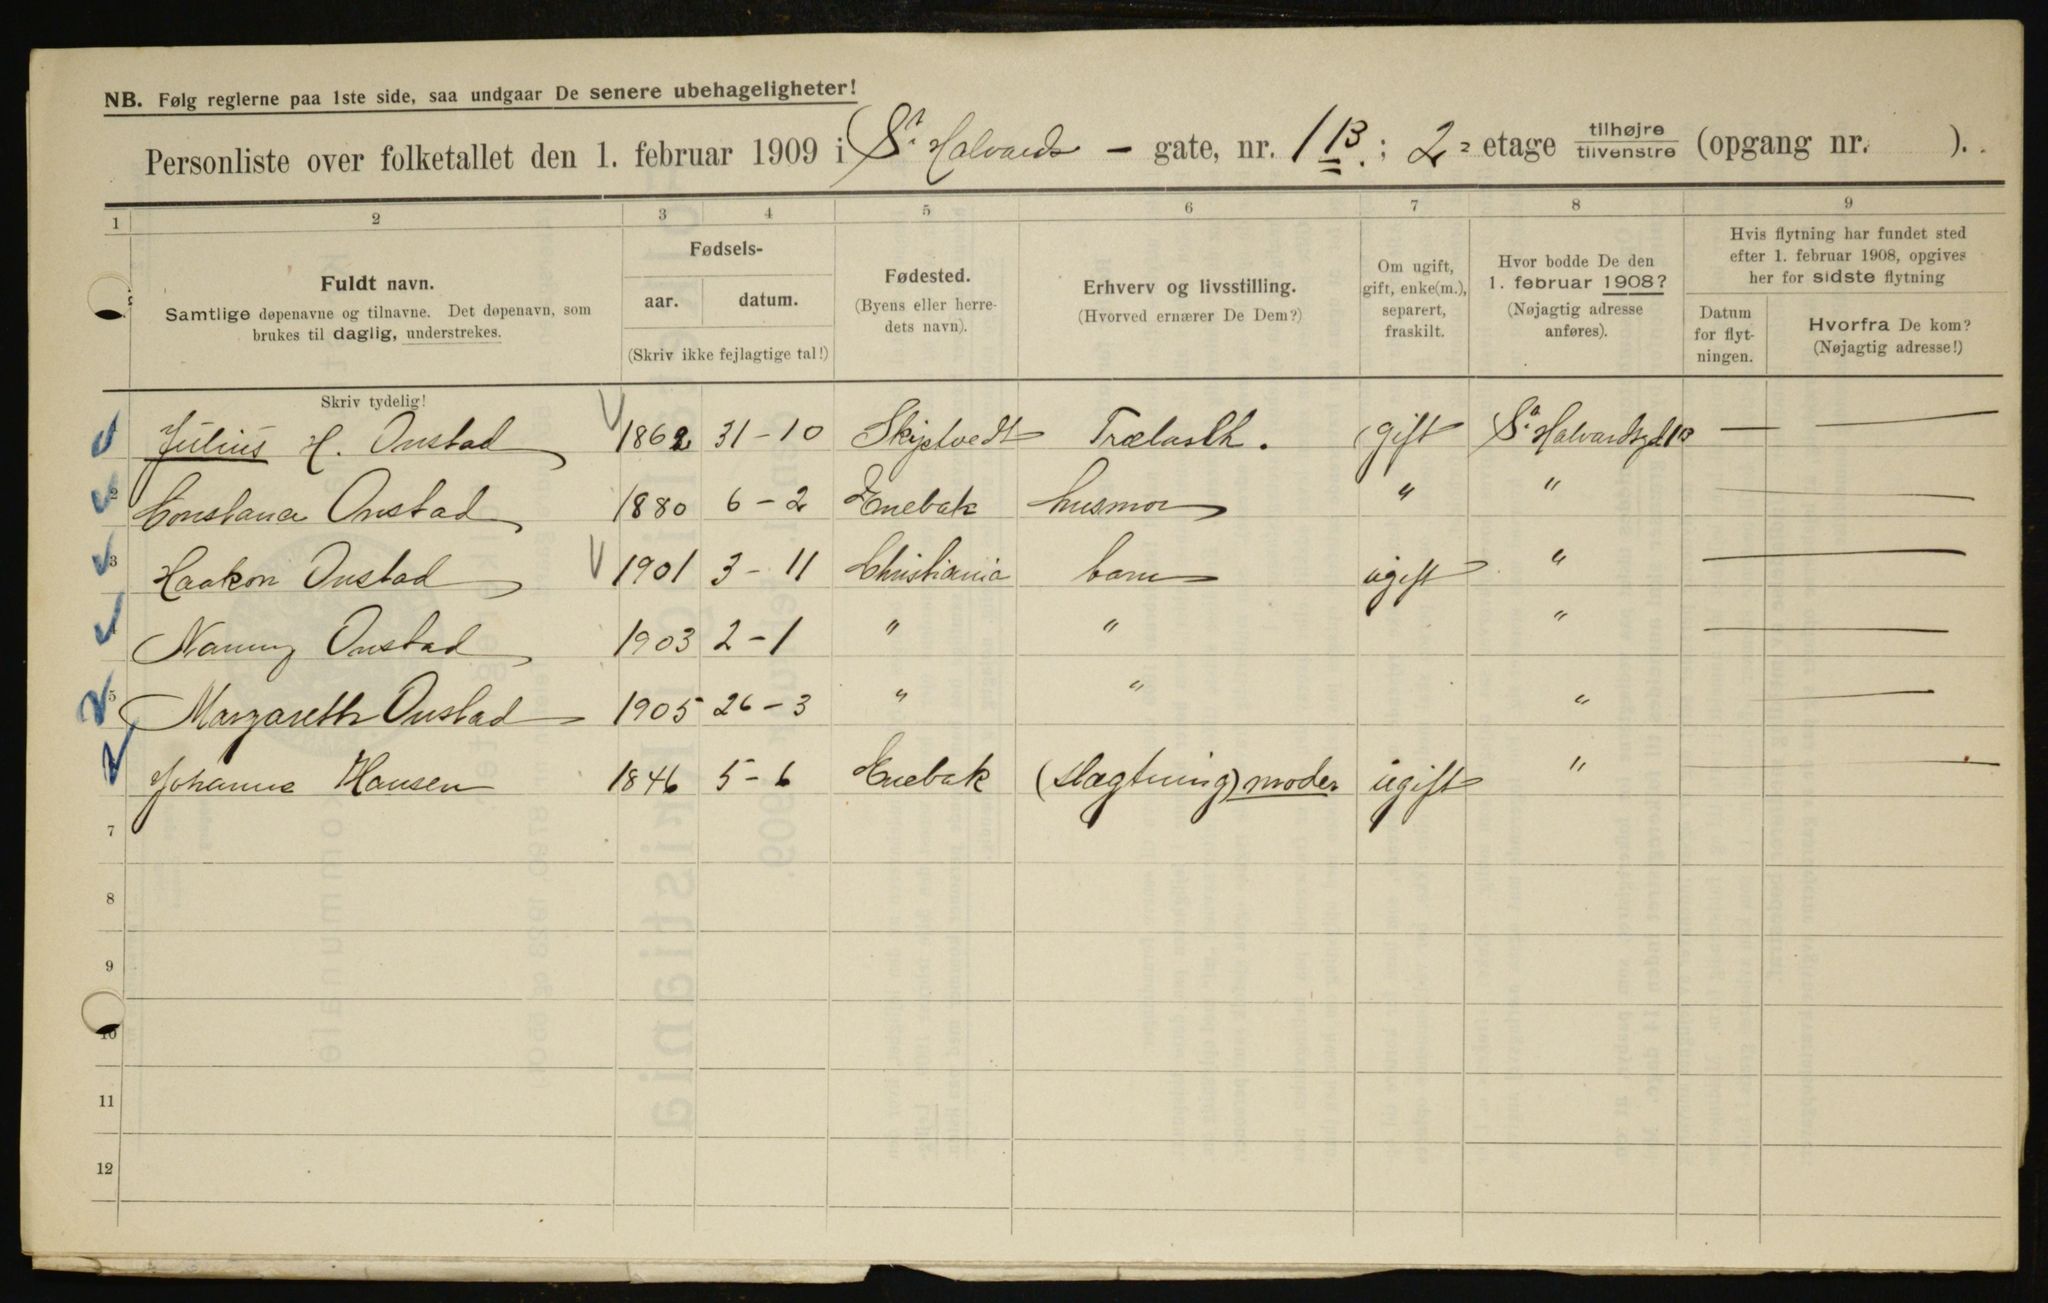 NB. Følg reglerne paa 1ste side, saa undgaar De senere ubehageligheter!
Personliste over folketallet den 1. februar 1909 i St. Halvards - gate, nr. 1 B.; 2 etage tilhøjre tilvenstre (opgang nr. ).
1 2 3 4 5 6 7 8 9
Fuldt navn.
Samtlige døpenavne og tilnavne. Det døpenavn, som
brukes til daglig, understrekes.
Fødsels-
aar. datum.
(Skriv ikke fejlagtige tal!)
Fødested.
(Byens eller herre-
dets navn).
Erhverv og livsstilling.
(Hvorved ernærer De Dem?)
Om ugift,
gift, enke(m.),
separert,
fraskilt.
Hvor bodde De den
1. februar 1908?
(Nøjagtig adresse
anføres).
Hvis flytning har fundet sted
efter 1. februar 1908, opgives
her for sidste flytning
Datum
for flyt-
ningen.
Hvorfra De kom?
(Nøjagtig adresse!)
Skriv tydelig!
Julius H. Onstad 1862 31-10 Skiptvedt gift — —
2 Onstad 1880 6-2 Enebak husmor " " —
3 Haakon Onstad 1901 3-11 Christiania barn ugift " —
Nanny Onstad 1903 2-1 " " " —
5 Margareth Onstad 1905 26-3 " " " —
Johanne Hansen 1846 5-6 Enebak (slægtning) moder ugift " —
7
8
9
10
11
12